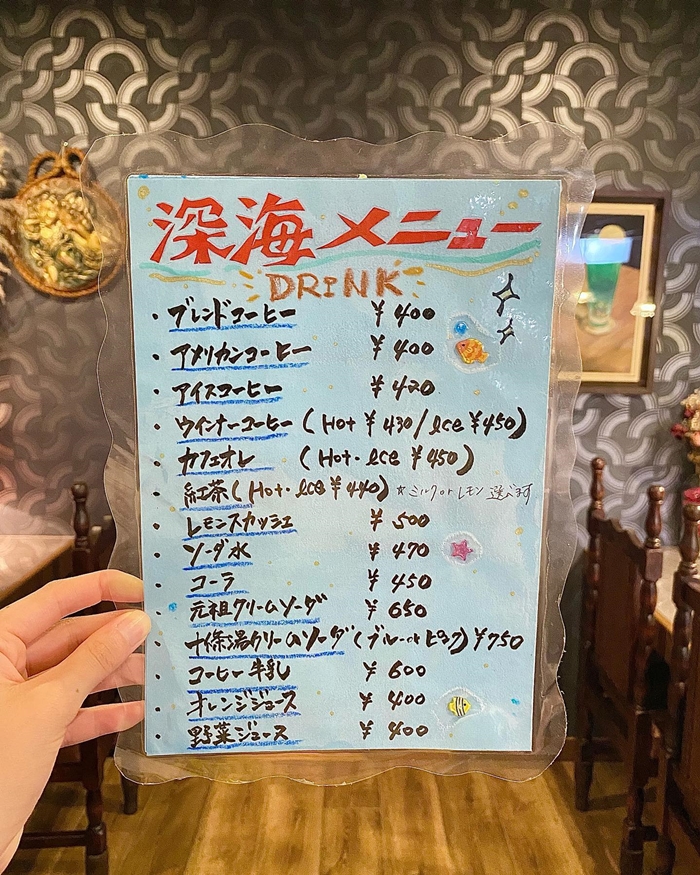 深海メニュー
DRINK
・ブレンドコーヒー ¥400
・アメリカンコーヒー ¥400
・アイスコーヒー ¥420
・ウインナーコーヒー (Hot ¥430/Ice ¥450)
・カフェオレ (Hot・Ice ¥450)
・紅茶(Hot・Ice ¥440) ☆ミルク or レモン 選べます
・レモンスカッシュ ¥500
・ソーダ水 ¥470
・コーラ ¥450
・元祖クリームソーダ ¥650
・十條湯クリームソーダ(ブルー or ピンク) ¥750
・コーヒー牛乳 ¥600
・オレンジジュース ¥400
・野菜ジュース ¥400